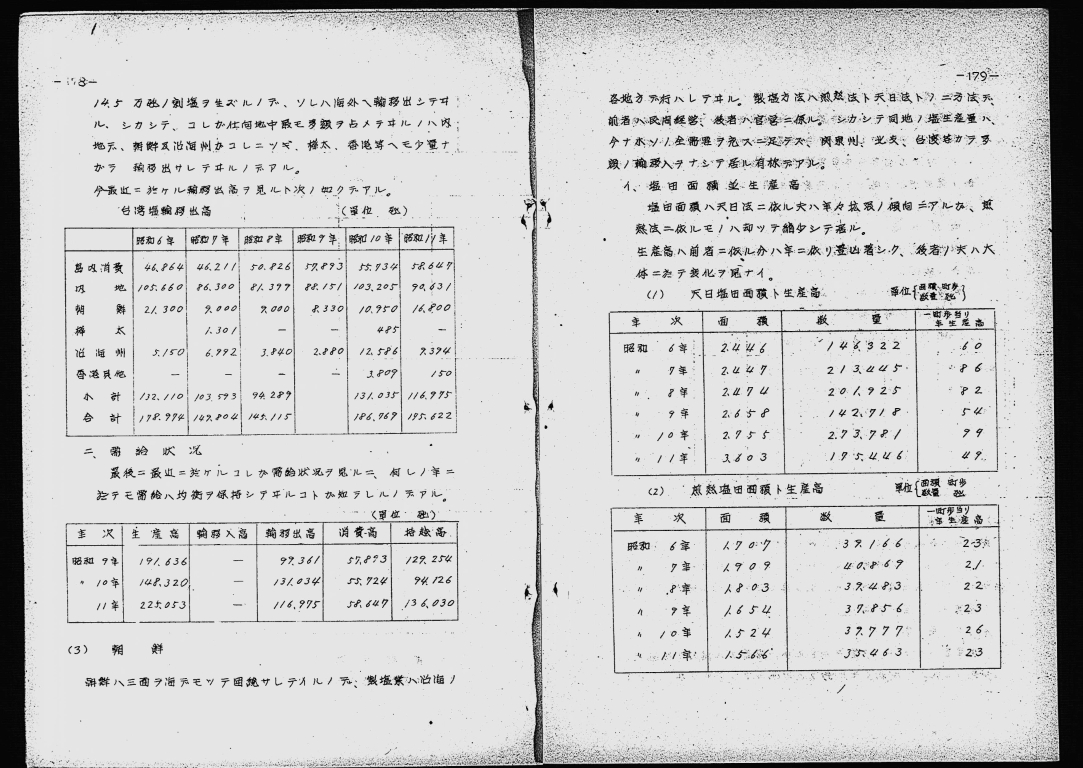 14.5 万瓲ノ剰塩ヲ生ズルノデ、ソレハ海外ヘ輸移出シテヰ
ル、シカシテ、コレガ仕向地中最モ多額ヲ占メテヰルノハ内
地デ、朝鮮及沿海州ガコレニツギ、樺太、香港等ヘモ少量ナ
ガラ 輸移出サレテヰルノデアル。
今最近ニ於ケル輸移出高ヲ見ルト次ノ如クデアル。
台湾塩輸移出高 (単位 瓲)
昭和6年 昭和7年 昭和8年 昭和9年 昭和10年 昭和11年
島内消費 46.864 46.211 50.826 57.893 55.734 58.647
内地 105.660 86.300 81.399 88.151 103.205 90.631
朝鮮 21.300 9.000 9.000 8.330 10.950 16.800
樺太 1.301 — — 485 —
沿海州 5.150 6.992 3.840 2.880 12.586 9.394
香港其他 — — — — 3.809 150
小計 132.110 103.593 94.289 131.035 116.975
合計 178.974 149.804 145.115 186.769 175.622
二、需給状況
最後ニ最近ニ於ケルコレガ需給状況ヲ見ルニ、何レノ年ニ
於テモ需給ハ均衡ヲ保持シテヰルコトガ知ラレルノデアル。
(単位 瓲)
年次 生産高 輸移入高 輸移出高 消費高 持越高
昭和 9年 191.636 — 99.361 57.893 129.254
〃 10年 148.320 — 131.034 55.724 94.126
11年 225.053 — 116.975 58.647 136.030
(3) 朝鮮
朝鮮ハ三面ヲ海デモッテ囲繞サレテイルノデ、製塩業ハ沿海ノ
—179—
各地方デ行ハレテヰル。製塩方法ハ煎熬法ト天日法トノ二方法デ、
前者ハ民間経営、後者ハ官営ニ係ル。シカシテ同地ノ塩生産量ハ、
今ナホソノ全需要ヲ充スニ足ラズ、関東州、北支、台湾等カラ多
額ノ輸移入ヲナシテ居ル有様デアル。
イ、塩田面積並生産高
塩田面積ハ天日法ニ依ル大ハ年々拡張ノ傾向ニアルガ、煎
熬法ニ依ルモノハ却ッテ縮少シテ居ル。
生産高ハ前者ニ依ル分ハ年ニ依リ豊凶著シク、後者ノ夫ハ大
体ニ於テ変化ヲ見ナイ。
(1) 天日塩田面積ト生産高 単位{面積 町歩 数量 瓲}
年次 面積 数量 一町歩当リ年生産高
昭和 6年 2.446 146.322 60
〃 7年 2.447 213.445 86
〃 8年 2.474 201.925 82
〃 9年 2.658 142.718 54
〃 10年 2.755 273.781 99
〃 11年 3.603 175.446 49
(2) 煎熬塩田面積ト生産高 単位{面積 町歩 数量 瓲}
年次 面積 数量 一町歩当リ年生産高
昭和 6年 1.707 39.166 23
〃 7年 1.909 40.869 21
〃 8年 1.803 39.483 22
〃 9年 1.654 37.856 23
〃 10年 1.524 39.777 26
〃 11年 1.566 35.463 23